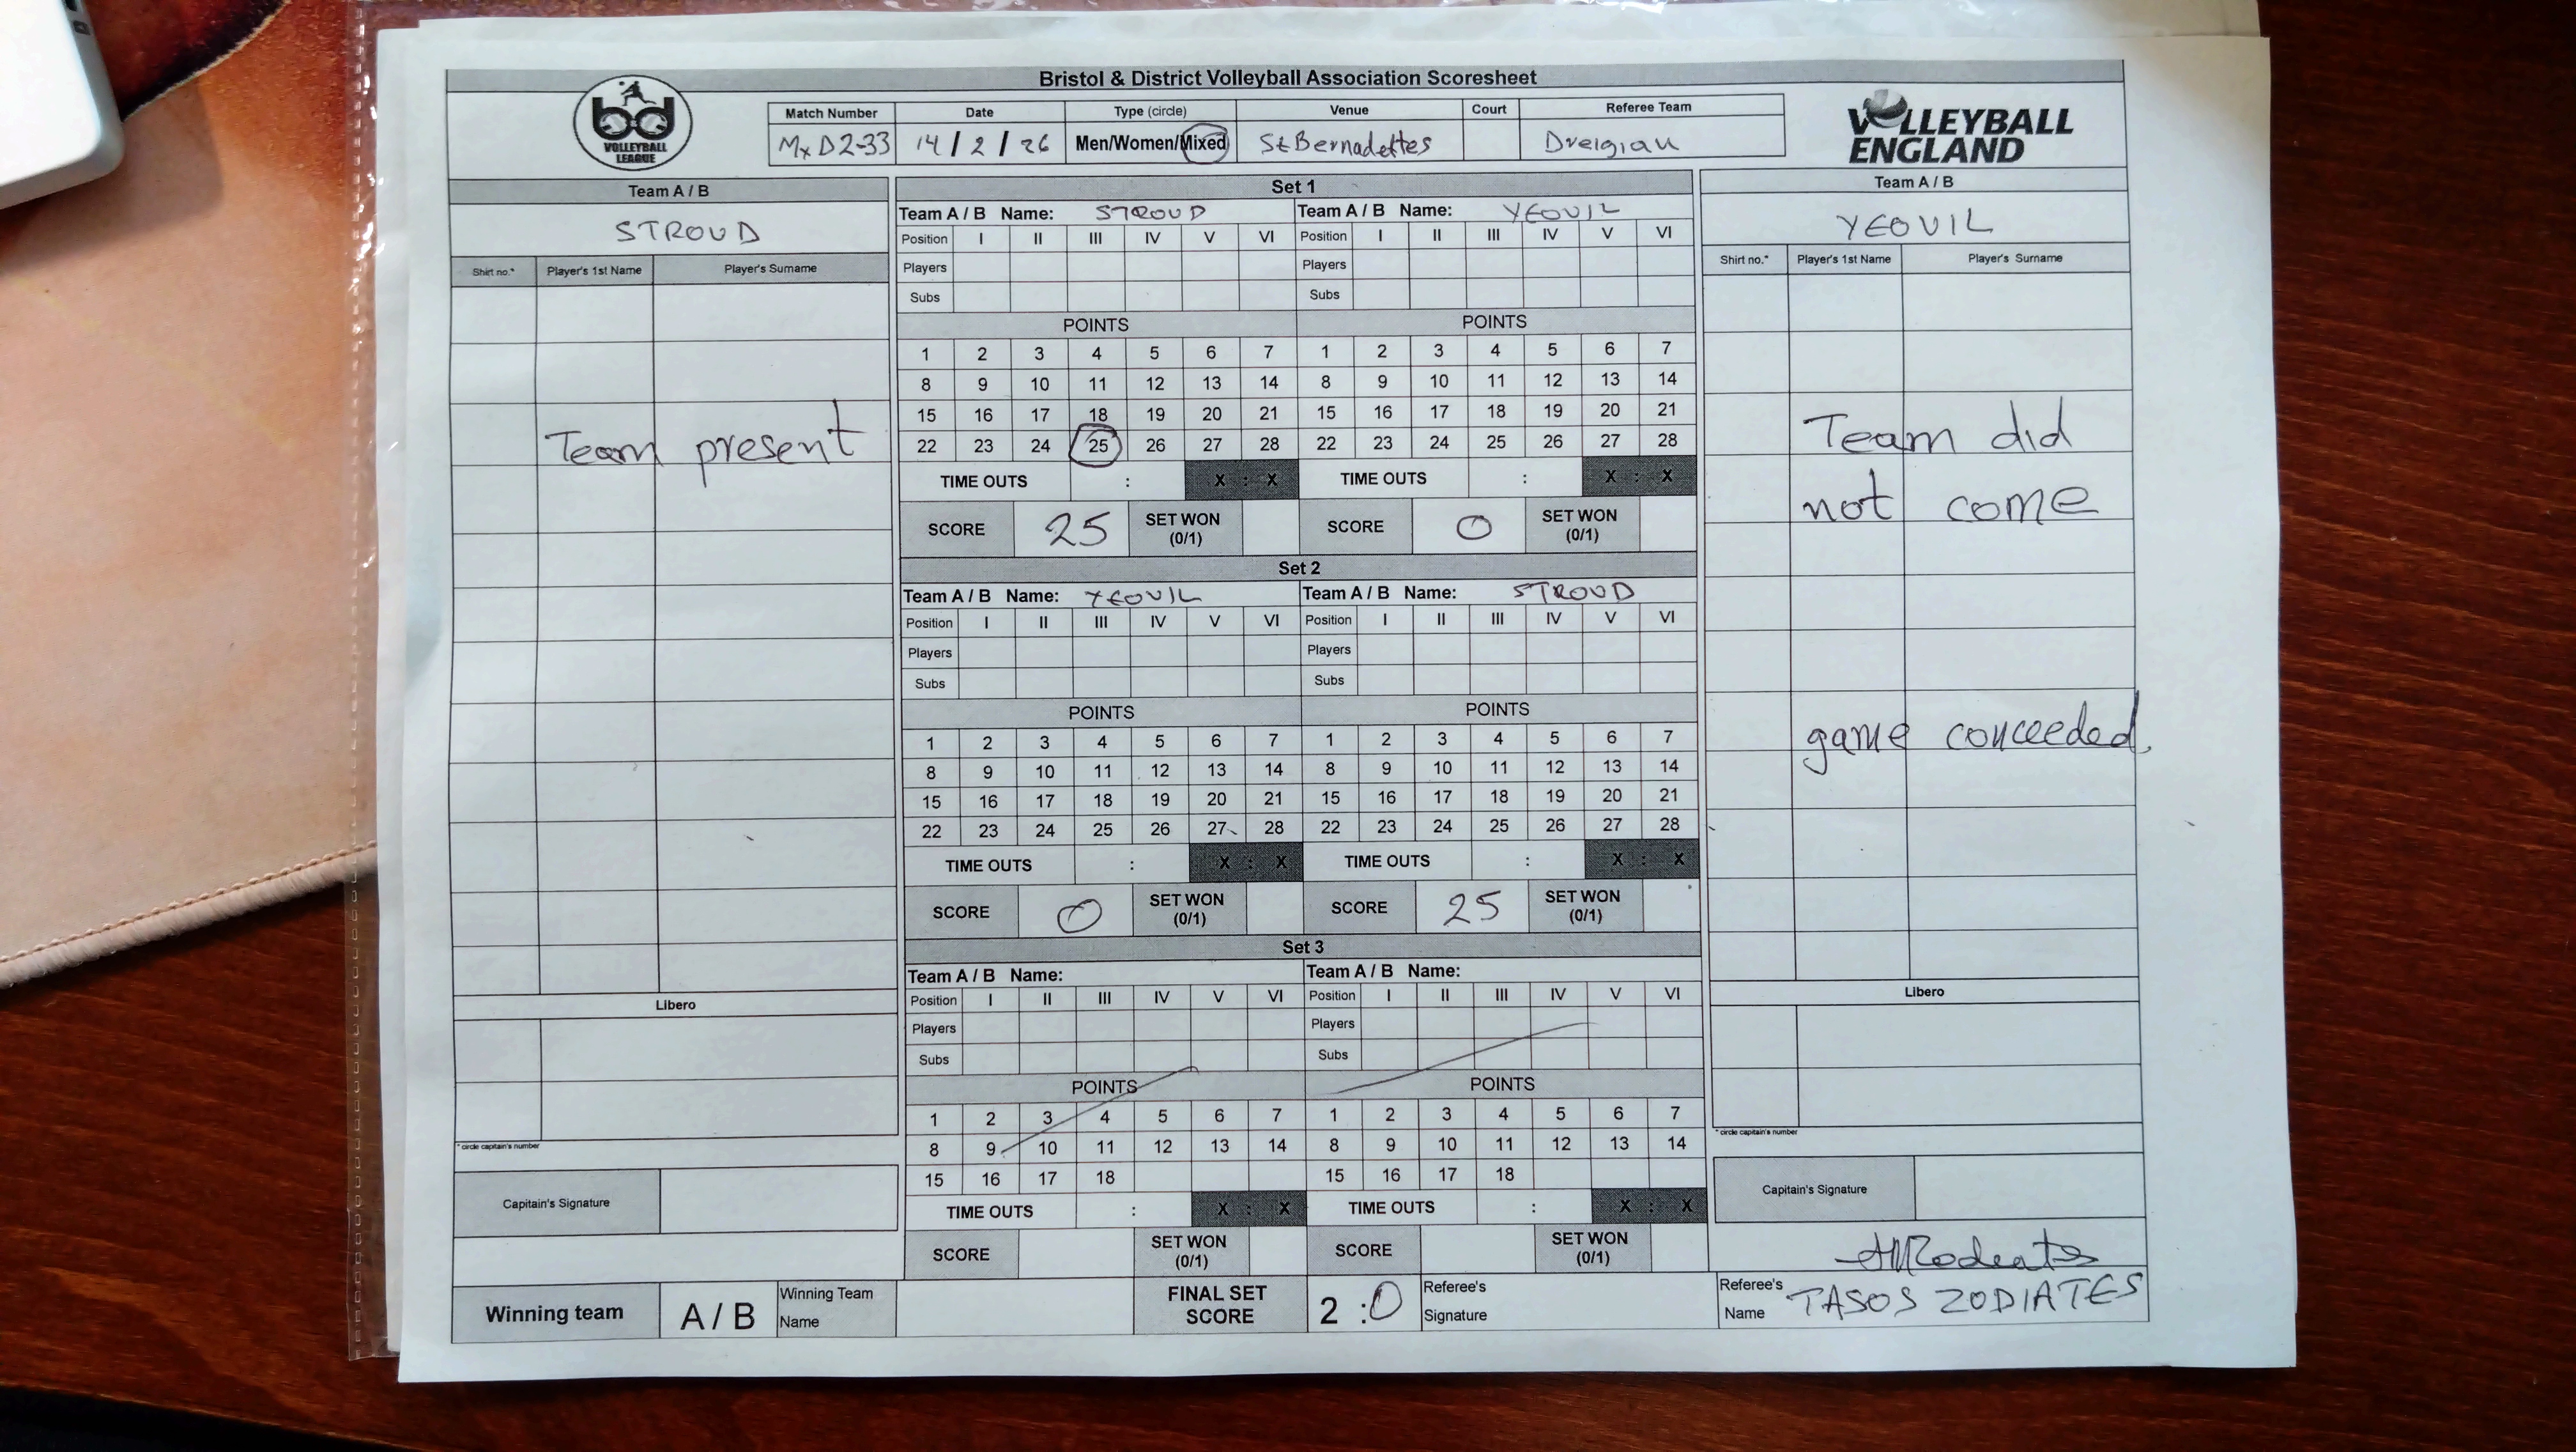 Bristol & District Volleyball Association Scoresheet
bd
VOLLEYBALL
LEAGUE
Match Number Date Type (circle) Venue Court Referee Team
MxD2-33 14 / 2 / 26 Men/Women/Mixed St Bernadettes Dreigiau
VOLLEYBALL
ENGLAND
Team A / B
STROUD
Shirt no.* Player's 1st Name Player's Surname
Team present
Libero
* circle captain's number
Capitain's Signature
Set 1
Team A / B Name: STROUD Team A / B Name: YEOVIL
Position I II III IV V VI Position I II III IV V VI
Players Players
Subs Subs
POINTS POINTS
1 2 3 4 5 6 7 1 2 3 4 5 6 7
8 9 10 11 12 13 14 8 9 10 11 12 13 14
15 16 17 18 19 20 21 15 16 17 18 19 20 21
22 23 24 25 26 27 28 22 23 24 25 26 27 28
TIME OUTS : X : X TIME OUTS : X : X
SCORE 25 SET WON (0/1) SCORE 0 SET WON (0/1)
Set 2
Team A / B Name: YEOVIL Team A / B Name: STROUD
Position I II III IV V VI Position I II III IV V VI
Players Players
Subs Subs
POINTS POINTS
1 2 3 4 5 6 7 1 2 3 4 5 6 7
8 9 10 11 12 13 14 8 9 10 11 12 13 14
15 16 17 18 19 20 21 15 16 17 18 19 20 21
22 23 24 25 26 27 28 22 23 24 25 26 27 28
TIME OUTS : X : X TIME OUTS : X : X
SCORE 0 SET WON (0/1) SCORE 25 SET WON (0/1)
Set 3
Team A / B Name: Team A / B Name:
Position I II III IV V VI Position I II III IV V VI
Players Players
Subs Subs
POINTS POINTS
1 2 3 4 5 6 7 1 2 3 4 5 6 7
8 9 10 11 12 13 14 8 9 10 11 12 13 14
15 16 17 18 15 16 17 18
TIME OUTS : X : X TIME OUTS : X : X
SCORE SET WON (0/1) SCORE SET WON (0/1)
Team A / B
YEOVIL
Shirt no.* Player's 1st Name Player's Surname
Team did
not come
game conceeded.
Libero
* circle captain's number
Capitain's Signature
Winning team A / B Winning Team Name FINAL SET SCORE 2 : 0 Referee's Signature Referee's Name TASOS ZODIATES